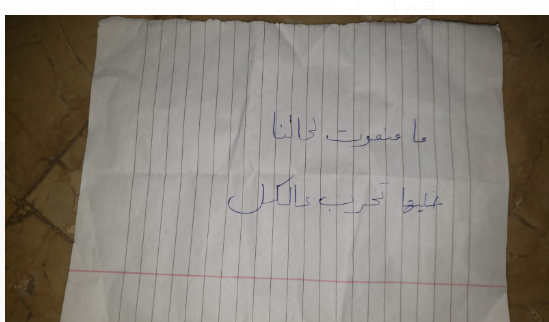 ما منموت لحالنا
خليها تخرب عالكل